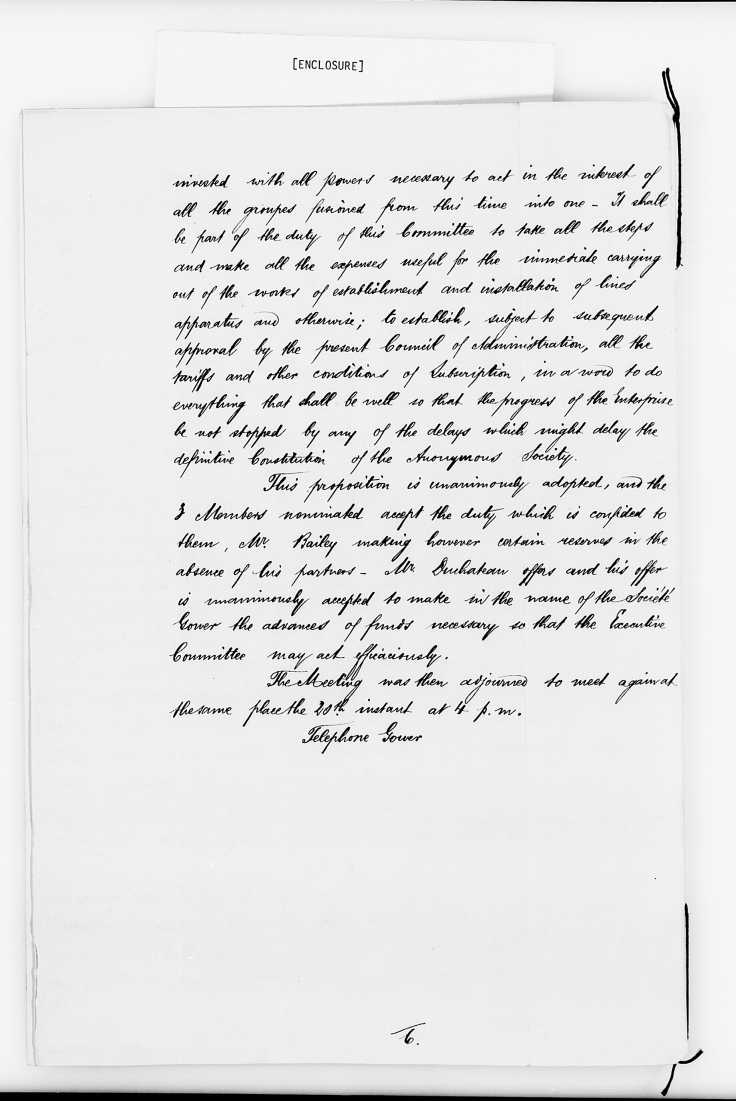 [ENCLOSURE]
invested with all powers necessary to act in the interest of
all the groupes fusioned from this time into one - It shall
be part of the duty of this Committee to take all the steps
and make all the expenses useful for the immediate carrying
out of the works of establishment and installation of lines
apparatus and otherwise; to establish, subject to subsequent
approval by the present Council of Administration, all the
tariffs and other conditions of Subscription, in a word to do
everything that shall be well so that the progress of the Enterprise
be not stopped by any of the delays which might delay the
definitive Constitution of the Anonymous Society.
This proposition is unanimously adopted, and the
3 Members nominated accept the duty which is confided to
them, Mr. Bailey making however certain reserves in the
absence of his partners - Mr. Duchateau offers and his offer
is unanimously accepted to make in the name of the Société
Gower the advances of funds necessary so that the Executive
Committee may act efficaciously.
The Meeting was then adjourned to meet again at
the same place the 20th instant at 4 p.m.
Telephone Gower
6.